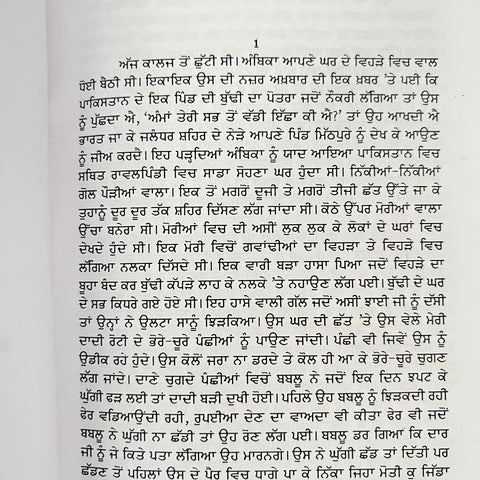 1
ਅੱਜ ਕਾਲਜ ਤੋਂ ਛੁੱਟੀ ਸੀ। ਅੰਬਿਕਾ ਆਪਣੇ ਘਰ ਦੇ ਵਿਹੜੇ ਵਿਚ ਵਾਲ
ਧੋਈ ਬੈਠੀ ਸੀ। ਇਕਾਇਕ ਉਸ ਦੀ ਨਜ਼ਰ ਅਖ਼ਬਾਰ ਦੀ ਇਕ ਖ਼ਬਰ 'ਤੇ ਪਈ ਕਿ
ਪਾਕਿਸਤਾਨ ਦੇ ਇਕ ਪਿੰਡ ਦੀ ਬੁੱਢੀ ਦਾ ਪੋਤਰਾ ਜਦੋਂ ਨੌਕਰੀ ਲੱਗਿਆ ਤਾਂ ਉਸ
ਨੂੰ ਪੁੱਛਦਾ ਐ, 'ਅੰਮਾਂ ਤੇਰੀ ਸਭ ਤੋਂ ਵੱਡੀ ਇੱਛਾ ਕੀ ਐ?' ਤਾਂ ਉਹ ਆਖਦੀ ਐ
ਭਾਰਤ ਜਾ ਕੇ ਜਲੰਧਰ ਸ਼ਹਿਰ ਦੇ ਨੇੜੇ ਆਪਣੇ ਪਿੰਡ ਮਿੱਠਪੁਰੇ ਨੂੰ ਦੇਖ ਕੇ ਆਉਣ
ਨੂੰ ਜੀਅ ਕਰਦੈ। ਇਹ ਪੜ੍ਹਦਿਆਂ ਅੰਬਿਕਾ ਨੂੰ ਯਾਦ ਆਇਆ ਪਾਕਿਸਤਾਨ ਵਿਚ
ਸਥਿਤ ਰਾਵਲਪਿੰਡੀ ਵਿਚ ਸਾਡਾ ਸੋਹਣਾ ਘਰ ਹੁੰਦਾ ਸੀ। ਨਿੱਕੀਆਂ-ਨਿੱਕੀਆਂ
ਗੋਲ ਪੌੜੀਆਂ ਵਾਲਾ। ਇਕ ਤੋਂ ਮਗਰੋਂ ਦੂਜੀ ਤੇ ਮਗਰੋਂ ਤੀਜੀ ਛੱਤ ਉੱਤੇ ਜਾ ਕੇ
ਤੁਹਾਨੂੰ ਦੂਰ ਦੂਰ ਤੱਕ ਸ਼ਹਿਰ ਦਿੱਸਣ ਲੱਗ ਜਾਂਦਾ ਸੀ। ਕੋਠੇ ਉੱਪਰ ਮੋਰੀਆਂ ਵਾਲਾ
ਉੱਚਾ ਬਨੇਰਾ ਸੀ। ਮੋਰੀਆਂ ਵਿਚ ਦੀ ਅਸੀਂ ਲੁਕ ਲੁਕ ਕੇ ਲੋਕਾਂ ਦੇ ਘਰਾਂ ਵਿਚ
ਦੇਖਦੇ ਹੁੰਦੇ ਸੀ। ਇਕ ਮੋਰੀ ਵਿਚੋਂ ਗਵਾਂਢੀਆਂ ਦਾ ਵਿਹੜਾ ਤੇ ਵਿਹੜੇ ਵਿਚ
ਲੱਗਿਆ ਨਲਕਾ ਦਿੱਸਦੇ ਸੀ। ਇਕ ਵਾਰੀ ਬੜਾ ਹਾਸਾ ਪਿਆ ਜਦੋਂ ਵਿਹੜੇ ਦਾ
ਬੂਹਾ ਬੰਦ ਕਰ ਬੁੱਢੀ ਕੱਪੜੇ ਲਾਹ ਕੇ ਨਲਕੇ 'ਤੇ ਨਹਾਉਣ ਲੱਗ ਪਈ। ਬੁੱਢੀ ਦੇ ਘਰ
ਦੇ ਸਭ ਕਿਧਰੇ ਗਏ ਹੋਏ ਸੀ। ਇਹ ਹਾਸੇ ਵਾਲੀ ਗੱਲ ਜਦੋਂ ਅਸੀਂ ਝਾਈ ਜੀ ਨੂੰ ਦੱਸੀ
ਤਾਂ ਉਨ੍ਹਾਂ ਨੇ ਉਲਟਾ ਸਾਨੂੰ ਝਿੜਕਿਆ। ਉਸ ਘਰ ਦੀ ਛੱਤ 'ਤੇ ਉਸ ਵੇਲੇ ਮੇਰੀ
ਦਾਦੀ ਰੋਟੀ ਦੇ ਭੋਰੇ-ਚੂਰੇ ਪੰਛੀਆਂ ਨੂੰ ਪਾਉਣ ਜਾਂਦੀ। ਪੰਛੀ ਵੀ ਜਿਵੇਂ ਉਸ ਨੂੰ
ਉਡੀਕ ਰਹੇ ਹੁੰਦੇ। ਉਸ ਕੋਲੋਂ ਜਰਾ ਨਾ ਡਰਦੇ ਤੇ ਕੋਲ ਹੀ ਆ ਕੇ ਭੋਰੇ-ਚੂਰੇ ਚੁਗਣ
ਲੱਗ ਜਾਂਦੇ। ਦਾਣੇ ਚੁਗਦੇ ਪੰਛੀਆਂ ਵਿਚੋਂ ਬਬਲੂ ਨੇ ਜਦੋਂ ਇਕ ਦਿਨ ਝਪਟ ਕੇ
ਘੁੱਗੀ ਫੜ ਲਈ ਤਾਂ ਦਾਦੀ ਬੜੀ ਦੁਖੀ ਹੋਈ। ਪਹਿਲੇ ਉਹ ਬਬਲੂ ਨੂੰ ਝਿੜਕਦੀ ਰਹੀ
ਫੇਰ ਵਡਿਆਉਂਦੀ ਰਹੀ, ਰੁਪਈਆ ਦੇਣ ਦਾ ਵਾਅਦਾ ਵੀ ਕੀਤਾ ਫੇਰ ਵੀ ਜਦੋਂ
ਬਬਲੂ ਨੇ ਘੁੱਗੀ ਨਾ ਛੱਡੀ ਤਾਂ ਉਹ ਰੋਣ ਲੱਗ ਪਈ। ਬਬਲੂ ਡਰ ਗਿਆ ਕਿ ਦਾਰ
ਜੀ ਨੂੰ ਜੇ ਕਿਤੇ ਪਤਾ ਲੱਗਿਆ ਉਹ ਮਾਰਨਗੇ। ਉਸ ਨੇ ਘੁੱਗੀ ਛੱਡ ਤਾਂ ਦਿੱਤੀ ਪਰ
ਛੱਡਣ ਤੋਂ ਪਹਿਲਾਂ ਉਸ ਦੇ ਪੈਰ ਵਿਚ ਧਾਗੇ ਪਾ ਕੇ ਨਿੱਕਾ ਜਿਹਾ ਮੋਤੀ ਕੁ ਜਿੱਡਾ